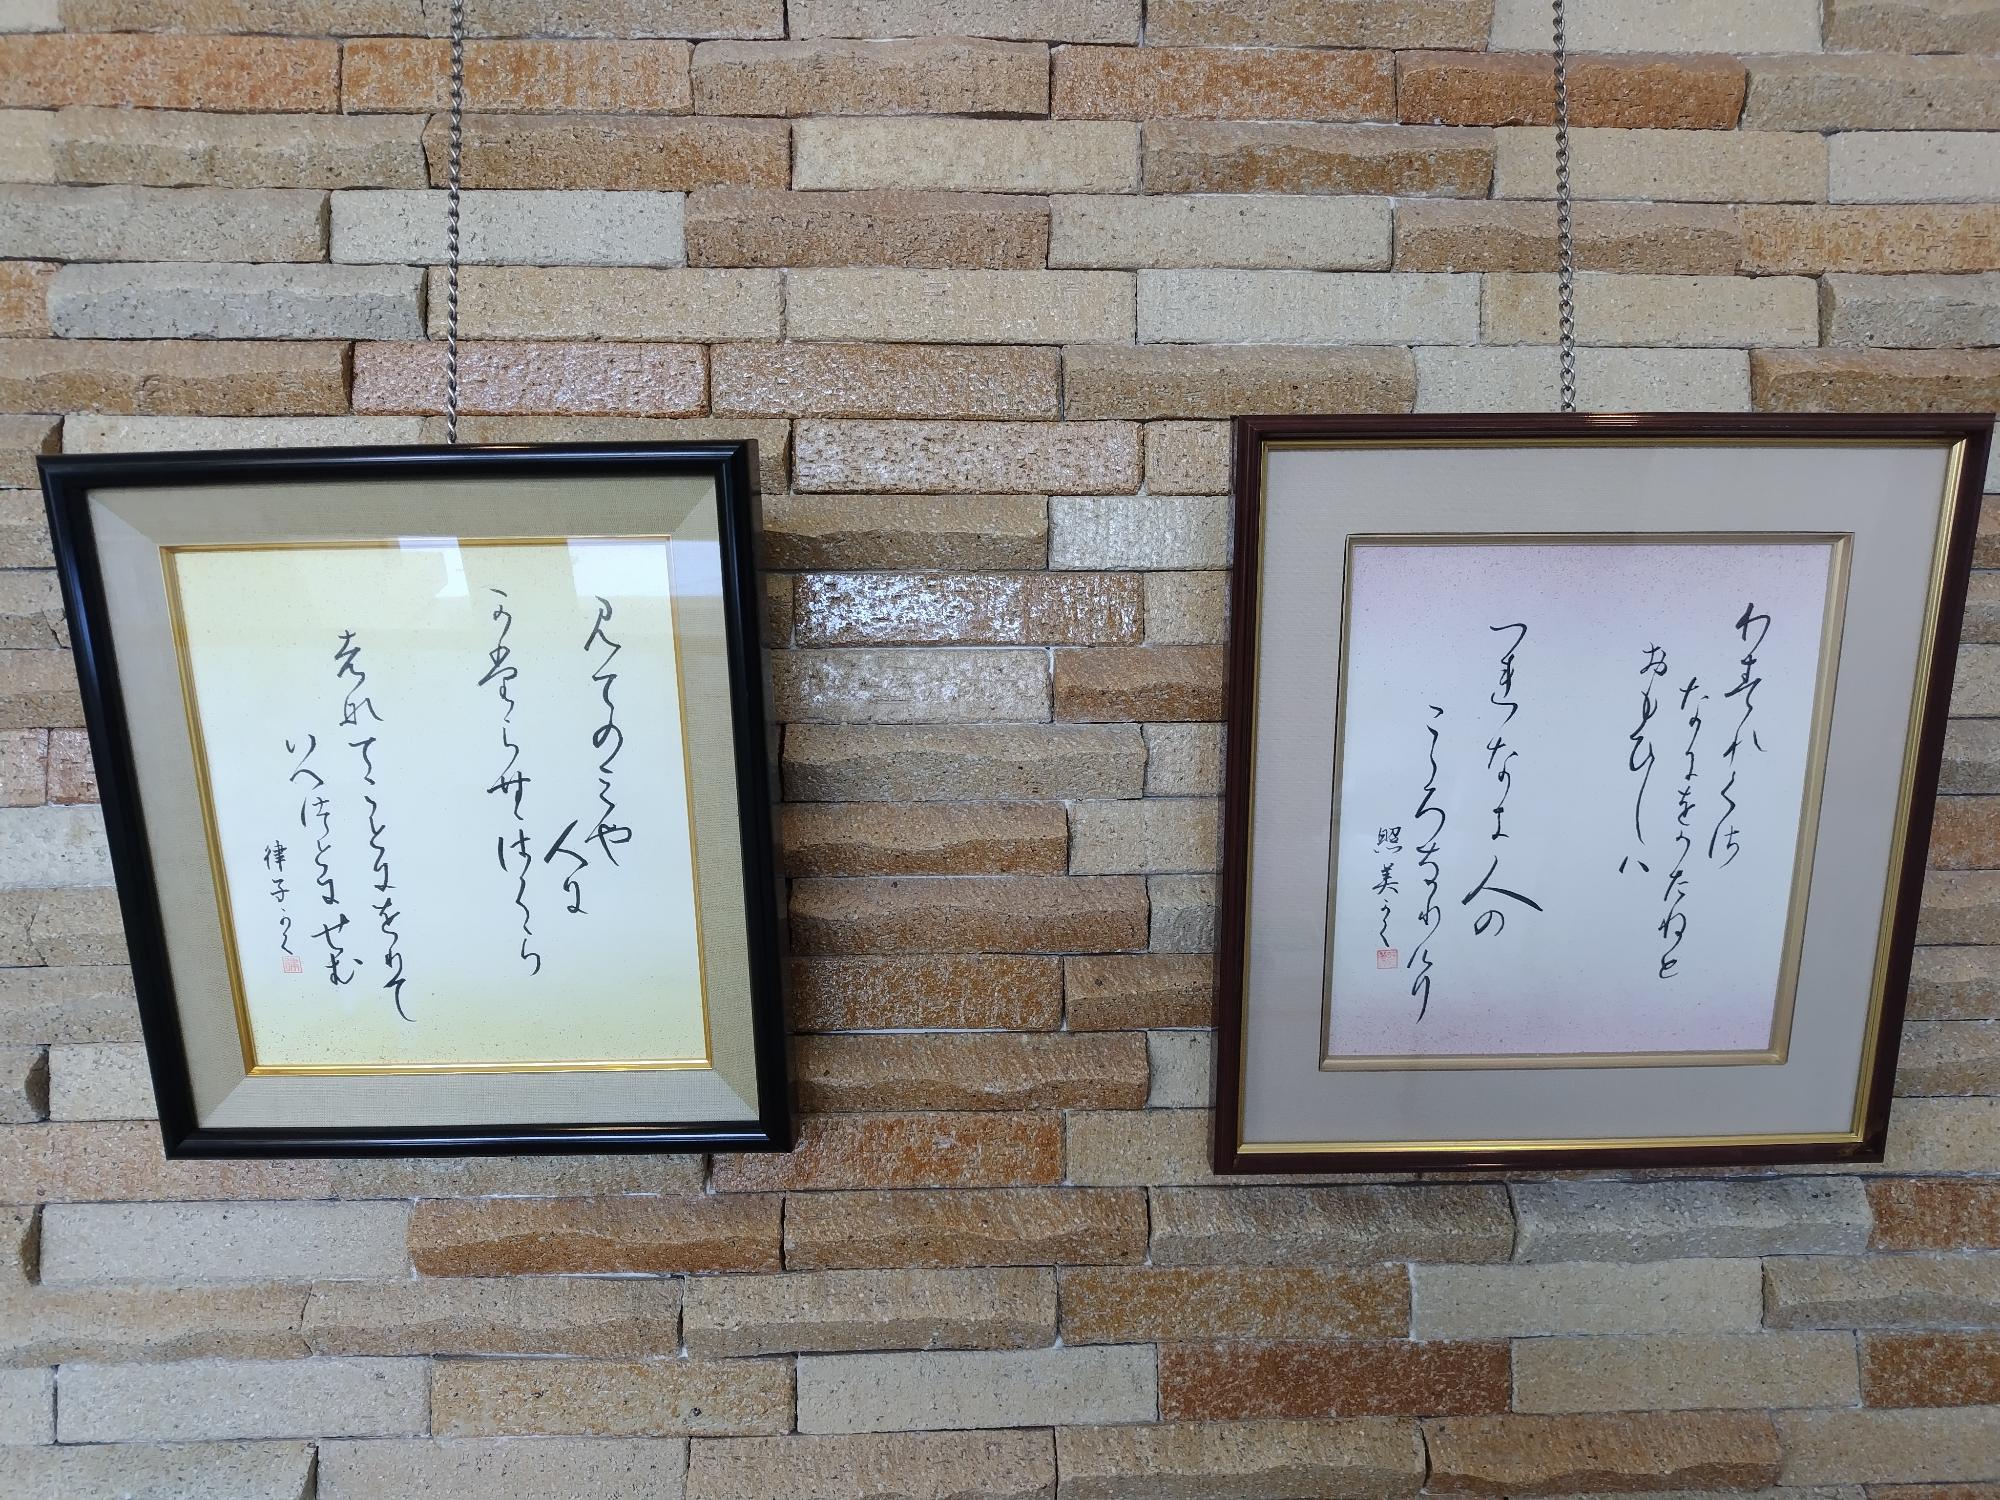 わすれくさ
なにをかたねと
おもひしハ
つれなき人の
こゝろなりけり
照美かく
見てのミや
人に
可堂らむさくら
者那てことにをりて
いへつとにせむ
律子かく